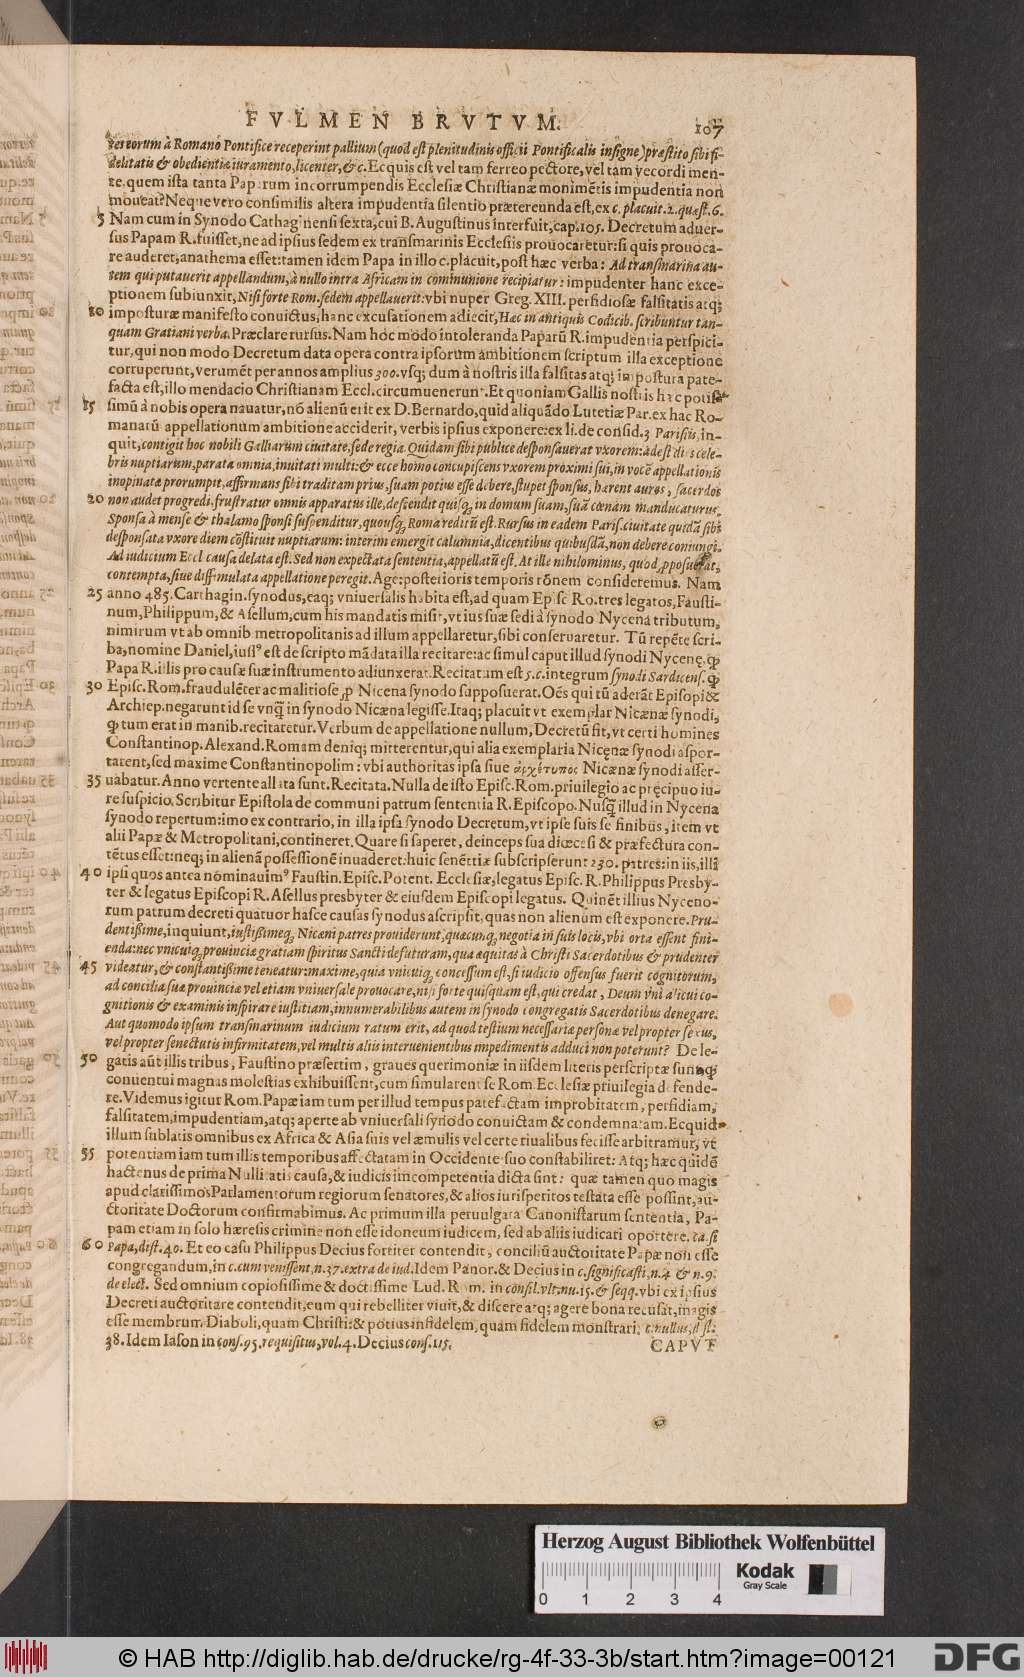 FVLMEN BRVTVM. 107
rerorum à Romano Pontifice receperint pallium (quod est plenitudinis officii Pontificalis insigne) præstito sibi fi-
delitatis & obedientiæ iuramento, licenter, &c. Ecquis est vel tam ferreo pectore, vel tam vecordi men-
te, quem ista tanta Paparum in corrumpendis Ecclesiæ Christianæ monimētis impudentia non
moueat? Neque vero consimilis altera impudentia silentio prætereunda est, ex c. placuit. 2. quæst. 6.
5 Nam cum in Synodo Cathaginensi sexta, cui B. Augustinus interfuit, cap. 105. Decretum aduer-
sus Papam R. fuisset, ne ad ipsius sedem ex transmarinis Ecclesiis prouocaretur: si quis prouoca-
re auderet, anathema esset: tamen idem Papa in illo c. placuit, post hæc verba: Ad transmarina au-
tem qui putauerit appellandum, à nullo intra Africam in communione recipiatur: impudenter hanc exce-
ptionem subiunxit, Nisi forte Rom. sedem appellauerit: vbi nuper Greg. XIII. perfidiosæ falsitatis atq;
10 imposturæ manifesto conuictus, hanc excusationem adiecit, Hæc in antiquis Codicib. scribuntur tan-
quam Gratiani verba. Præclare rursus. Nam hoc modo intoleranda Paparū R. impudentia perspici-
tur, qui non modo Decretum data opera contra ipsorum ambitionem scriptum illa exceptione
corruperunt, verumēt per annos amplius 300. vsq; dum à nostris illa falsitas atq; impostura pate-
facta est, illo mendacio Christianam Eccl. circumuenerunt. Et quoniam Gallis nostris hæc potis-
15 simū à nobis opera nauatur, nō alienū erit ex D. Bernardo, quid aliquādo Lutetiæ Par. ex hac Ro-
manarū appellationum ambitione acciderit, verbis ipsius exponere: ex li. de consid. 3 Parisiis, in-
quit, contigit hoc nobili Galliarum ciuitate, sede regia. Quidam sibi publice desponsauerat vxorem: adest dies cele-
bris nuptiarum, parata omnia, inuitati multi: & ecce homo concupiscens vxorem proximi sui, in vocē appellationis
inopinata prorumpit, affirmans sibi traditam prius, suam potius esse debere, stupet sponsus, hærent auros, sacerdos
20 non audet progredi, frustratur omnis apparatus ille, descendit quisq; in domum suam, suā cœnam manducaturus.
Sponsa à mense & thalamo sponsi suspenditur, quousq; Roma reditū est. Rursus in eadem Paris. ciuitate quidā sibi
desponsata vxore diem cōstituit nuptiarum: interim emergit calumnia, dicentibus quibusdā, non debere coniungi.
Ad iudicium Eccl. causa delata est. Sed non expectata sententia, appellatū est. At ille nihilominus, quod proposuerat,
contempta, siue dissimulata appellatione peregit. Age: posterioris temporis rōnem consideremus. Nam
25 anno 485. Carthagin. synodus, eaq; vniuersalis habita est, ad quam Episc. Ro. tres legatos, Fausti-
num, Philippum, & Asellum, cum his mandatis misit, vt ius suæ sedi à synodo Nycena tributum,
nimirum vt ab omnib. metropolitanis ad illum appellaretur, sibi conseruaretur. Tū repēte scri-
ba, nomine Daniel, iuss⁹ est de scripto mādata illa recitare: ac simul caput illud synodi Nycenę, qd
Papa R. illis pro causæ suæ instrumento adiunxerat. Recitatum est 5. c. integrum synodi Sardicens. qd
30 Episc. Rom. fraudulēter ac malitiose p Nicena synodo supposuerat. Oēs qui tū aderāt Episcopi &
Archiep. negarunt id se vnq̄ in synodo Nicæna legisse. Itaq; placuit vt exemplar Nicænæ synodi,
qd tum erat in manib. recitaretur. Verbum de appellatione nullum, Decretū fit, vt certi homines
Constantinop. Alexand. Romam deniq; mitterentur, qui alia exemplaria Nicęnæ synodi aspor-
tarent, sed maxime Constantinopolim: vbi authoritas ipsa siue ἀρχέτυπος Nicænæ synodi asser-
35 uabatur. Anno vertente allata sunt. Recitata. Nulla de isto Episc. Rom. priuilegio ac pręcipuo iu-
re suspicio. Scribitur Epistola de communi patrum sententia R. Episcopo. Nusq̄ illud in Nycena
synodo repertum: imo ex contrario, in illa ipsa synodo Decretum, vt ipse suis se finibus, item vt
alii Papæ & Metropolitani, contineret. Quare si saperet, deinceps sua diœcesi & præfectura con-
tētus esset: neq; in alienā possessionē inuaderet: huic senētiæ subscripserunt 230. patres: in iis, illi
40 ipsi quos antea nominauim⁹ Faustin. Episc. Potent. Ecclesiæ, legatus Episc. R. Philippus Presby-
ter & legatus Episcopi R. Asellus presbyter & eiusdem Episcopi legatus. Quinēt illius Nyceno-
rum patrum decreti quatuor hasce causas synodus ascripsit, quas non alienum est exponere. Pru-
dentißime, inquiunt, iustißimeq; Nicæni patres prouiderunt, quæcunq; negotia in suis locis, vbi orta essent fini-
enda: nec vnicuiq; prouinciæ gratiam spiritus Sancti defuturam, qua æquitas à Christi Sacerdotibus & prudenter
45 videatur, & constantißime teneatur: maxime, quia vnicuiq; concessum est, si iudicio offensus fuerit cognitorum,
ad concilia suæ prouinciæ vel etiam vniuersale prouocare, nisi forte quisquam est, qui credat, Deum vni alicui co-
gnitionis & examinis inspirare iustitiam, innumerabilibus autem in synodo congregatis Sacerdotibus denegare.
Aut quomodo ipsum transmarinum iudicium ratum erit, ad quod testium necessariæ personæ vel propter sexus,
vel propter senectutis infirmitatem, vel multis aliis interuenientibus impedimentis adduci non poterunt? De le-
50 gatis aūt illis tribus, Faustino præsertim, graues querimoniæ in iisdem literis perscriptæ sunt, qd
conuentui magnas molestias exhibuissent, cum simularent se Rom. Ecclesiæ priuilegia defende-
re. Videmus igitur Rom. Papæ iam tum per illud tempus patefactam improbitatem, perfidiam,
falsitatem, impudentiam, atq; aperte ab vniuersali synodo conuictam & condemnatam. Ecquid
illum sublatis omnibus ex Africa & Asia suis vel æmulis vel certe riualibus fecisse arbitramur, vt
55 potentiam iam tum illis temporibus affectatam in Occidente suo constabiliret: Atq; hæc quidē
hactenus de prima Nullitatis causa, & iudicis incompetentia dicta sint: quæ tamen quo magis
apud clarissimos Parlamentorum regiorum senatores, & alios iurisperitos testata esse possint, au-
ctoritate Doctorum confirmabimus. Ac primum illa peruulgata Canonistarum sententia, Pa-
pam etiam in solo hæresis crimine non esse idoneum iudicem, sed ab aliis iudicari oportere. ca. si
60 Papa, dist. 40. Et eo casu Philippus Decius fortiter contendit, conciliū auctoritate Papæ non esse
congregandum, in c. cum venissent, n. 37. extra de iud. Idem Panor. & Decius in c. significasti, n. 4 & n. 9.
de elect. Sed omnium copiosissime & doctissime Lud. Rom. in consil. vlt. nu. 15. & seqq. vbi ex ipsius
Decreti auctoritate contendit, eum qui rebelliter viuit, & discere atq; agere bona recusat, magis
esse membrum Diaboli, quam Christi: & potius infidelem, quam fidelem monstrari, c. nullus, dist.
38. Idem Iason in cons. 95, requisitus, vol. 4. Decius cons. 115.
CAPVT
Herzog August Bibliothek Wolfenbüttel
Kodak
Gray Scale
0 1 2 3 4
© HAB http://diglib.hab.de/drucke/rg-4f-33-3b/start.htm?image=00121
DFG